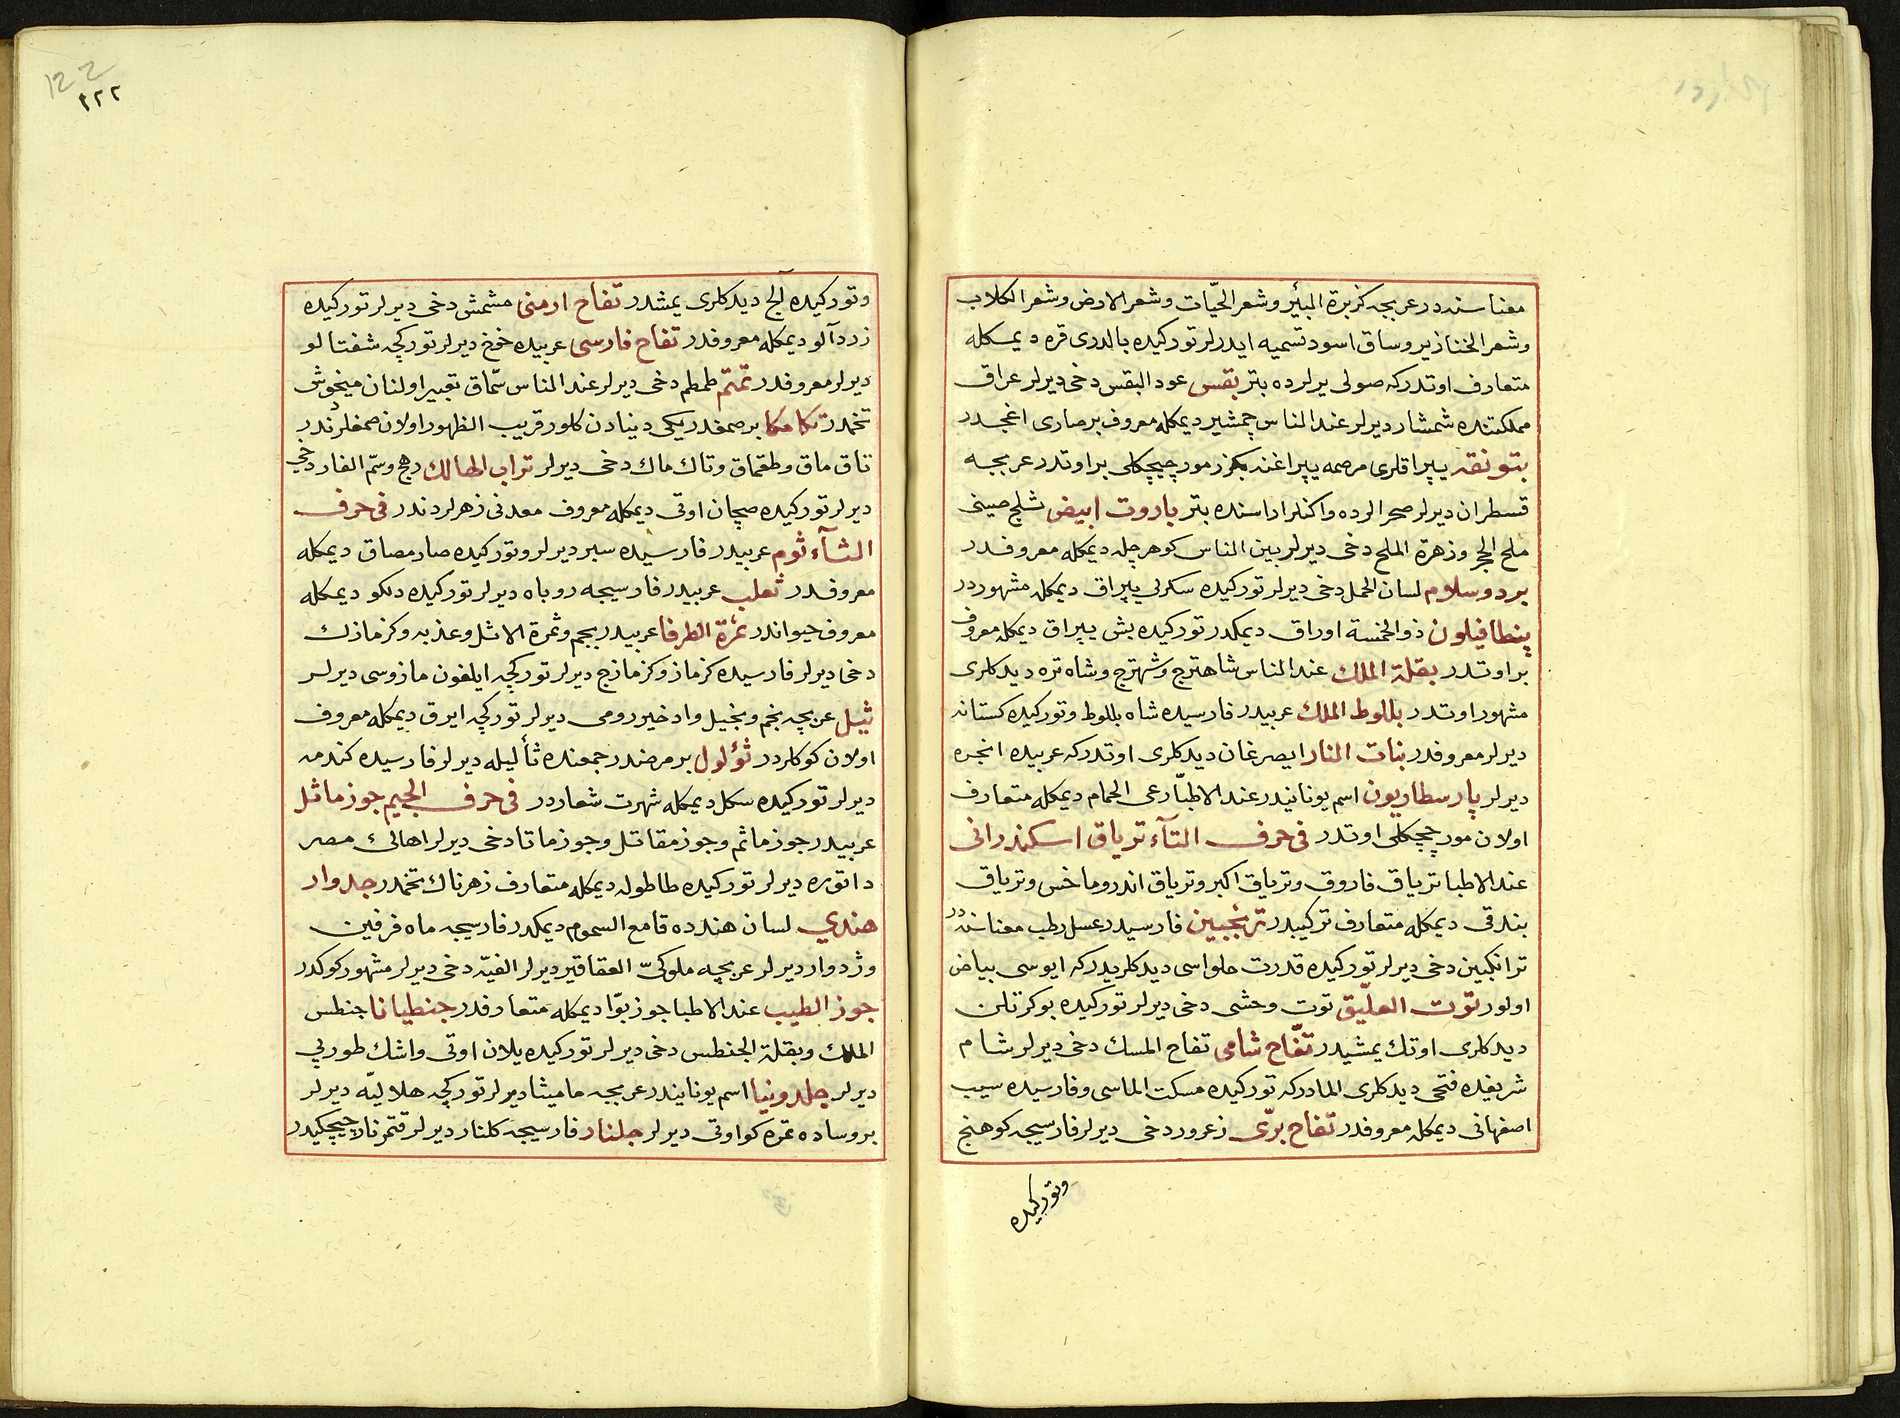 معناسنه در عربجه كزبرة البئر وشعر الحيّات وشعر الارض وشعر الكلاب
وشعر الخنازير وساق اسود تسميه ايدرلر توركيده بالدرى قره ديمكله
متعارف اوتدركه صولى يرلرده بتر بقس عود البقس دخى ديرلر عراق
مملكتنده شمشار ديرلر عند الناس چمشير ديمكله معروف بر صارى اغجدر
بتونقه يپراقلرى مرصمه يپراغنه بكزر مور چيچكلى بر اوتدر عربجه
قسطران ديرلر صحرالرده واكنلر اداسنده بتر باروت ابيض ثلج صينى
ملح الحجر وزهرة الملح دخى ديرلر بين الناس كوهرجله ديمكله معروفدر
بردوسلام لسان الحمل دخى ديرلر توركيده سكرلى يپراق ديمكله مشهوردر
پنطافيلون ذوالخمسة اوراق ديمكدر توركيده بش يپراق ديمكله معروف
بر اوتدر بقلة الملك عند الناس شاهترج وشهترج وشاه تره ديدكلرى
مشهور اوتدر بللوط الملك عربيدر فارسيده شاه بللوط وتوركيده كستانه
ديرلر معروفدر بنات النار ايصرغان ديدكلرى اوتدركه عربيده انجره
ديرلر پارسطاريون اسم يونانيدر عند الاطبّا رعى الحمام ديمكله متعارف
اولان مور چيچكلى اوتدر فى حرف التآء ترياق اسكندرانى
عند الاطبا ترياق فاروق وترياق اكبر وترياق اندروماخس وترياق
بندقى ديمكله متعارف تركيبدر ترنجبين فارسيدر عسل رطب معناسنه در
ترانكبين دخى ديرلر توركيده قدرت حلواسى ديدكلريدركه ايوسى بياض
اولور توت العلّيق توت وحشى دخى ديرلر توركيده بوكرتلن
ديدكلرى اوتك يمشيدر تفّاح شامى تفاح المسك دخى ديرلر شام
شريفده فتحى ديدكلرى المادركه توركيده مسكت الماسى وفارسيده سيب
اصفهانى ديمكله معروفدر تفاح برّى زعرور دخى ديرلر فارسيجه كوهنج
وتوركيده
١٢٢
122
وتوركيده آلج ديدكلرى يمشدر تفاح ارمنى مشمش دخى ديرلر توركيده
زردآلو ديمكله معروفدر تفاح فارسى عربيده خوخ ديرلر توركجه شفتالو
ديرلر معروفدر تمتم طمطم دخى ديرلر عند الناس سمّاق تعبير اولنان ميخوش
تخمدر تكامكا بر صمغدر يكى دينادن كلور قريب الظهور اولان صمغلرندر
تاق ماق وطقماق وتاك ماك دخى ديرلر تراب الهالك رهج وسمّ الفار دخى
ديرلر توركيده صچان اوتى ديمكله معروف معدنى زهرلردندر فى حرف
الثآء ثوم عربيدر فارسيده سير ديرلر وتوركيده صارمصاق ديمكله
معروفدر ثعلب عربيدر فارسيجه روباه ديرلر توركيده دلكو ديمكله
معروف حيواندر ثمرة الطرفا عربيدر بجم وثمرة الاثل وعذبه وكزمازك
دخى ديرلر فارسيده كزماز وكزمازج ديرلر توركجه ايلغون مازوسى ديرلر
ثيل عربجه نجم ونجيل واذخير رومى ديرلر توركجه ايرق ديمكله معروف
اولان كوكلردر ثؤلول بر مرضدر جمعنده ثأليله ديرلر فارسيده كندمه
ديرلر توركيده سكل ديمكله شهرت شعاردر فى حرف الجيم جوزماثل
عربيدر جوزماثم وجوزمقاتل وجوزماتا دخى ديرلر اهالئ مصر
داتوره ديرلر توركيده طاطوله ديمكله متعارف زهرناك تخمدر جدوار
هندي لسان هندده قامع السموم ديمكدر فارسيجه ماه فرفين
وژدوار ديرلر عربجه ملوكىّ العقاقير ديرلر الفيّه دخى ديرلر مشهور كوكدر
جوز الطيب عند الاطبا جوزبوّا ديمكله متعارفدر جنطيانا جنطس
الملك وبقلة الجنطس دخى ديرلر توركيده يلان اوتى واشك طوربي
ديرلر جلدونيا اسم يونانيدر عربجه ماميثا ديرلر توركجه هلاليّه ديرلر
بروساده تمره كو اوتى ديرلر جلنار فارسيجه كلنار ديرلر قتمر نار چيچكيدر